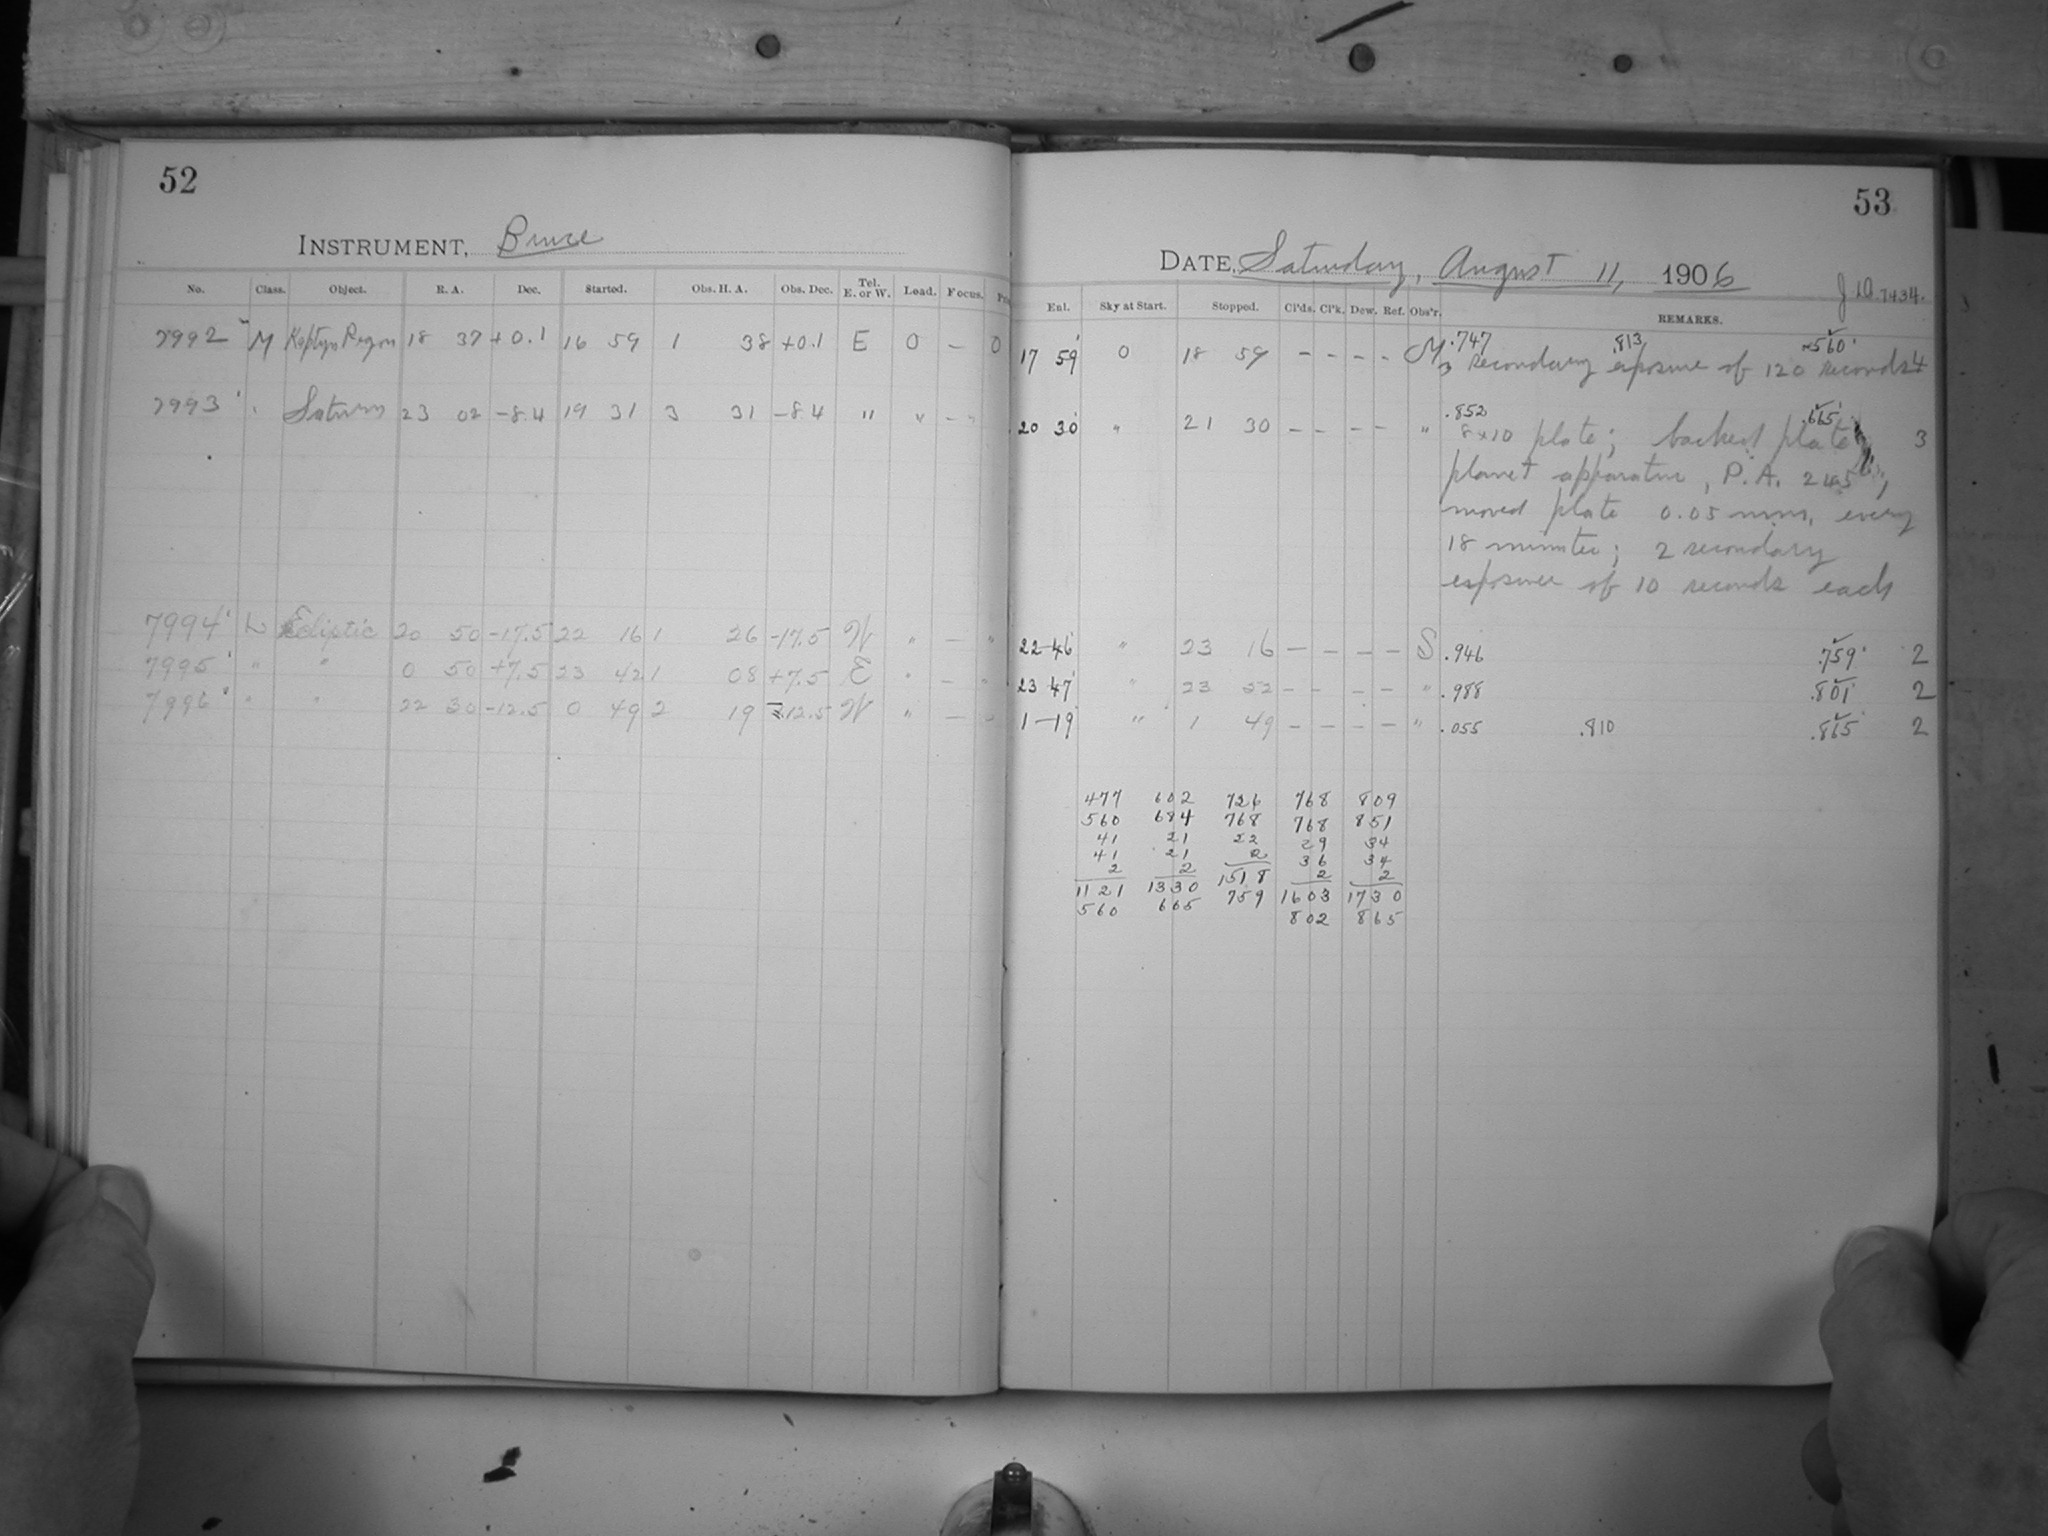 52
INSTRUMENT, Bruce
No. Class. Object. R. A. Dec. Started. Obs. H. A. Obs. Dec. Tel. E. or W. Load. Focus.
7992 M Kaptyn Region 18 37 +0.1 16 59 1 38 +0.1 E 0 — 0
7993 Saturn 23 02 -8.4 19 31 3 31 -8.4 " " — "
7994 L Ecliptic 20 50 -17.5 22 16 1 26 -17.5 W " — "
7995 " " 0 50 +7.5 23 42 1 08 +7.5 E " — "
7996 " " 22 30 -12.5 0 49 2 19 -12.5 W " — "
53
DATE, Saturday, August 11, 1906
J.D. 7434.
Enl. Sky at Start. Stopped. Cl'ds. Cl'k. Dew. Ref. Obs'r. REMARKS.
.747 .813 .560
17 59 0 18 59 — — — — M 3 secondary exposure of 120 seconds 4
.852 .665
20 30 " 21 30 — — — — " 8x10 plate; backed plate 3
planet apparatus, P.A.
moved plate 0.05 mm. every
18 minutes; 2 secondary
exposures of 10 seconds each
22-46 " 23 16 — — — — S .946 .759 2
23 47 " 23 52 — — — — " .988 .801 2
1-19 " 1 49 — — — — " .055 .810 .865 2
477 602 726 768 809
560 684 768 768 851
41 21 22 29 34
41 21 2 36 34
2 2 1518 2 2
1121 1330 759 1603 1730
560 665 802 865